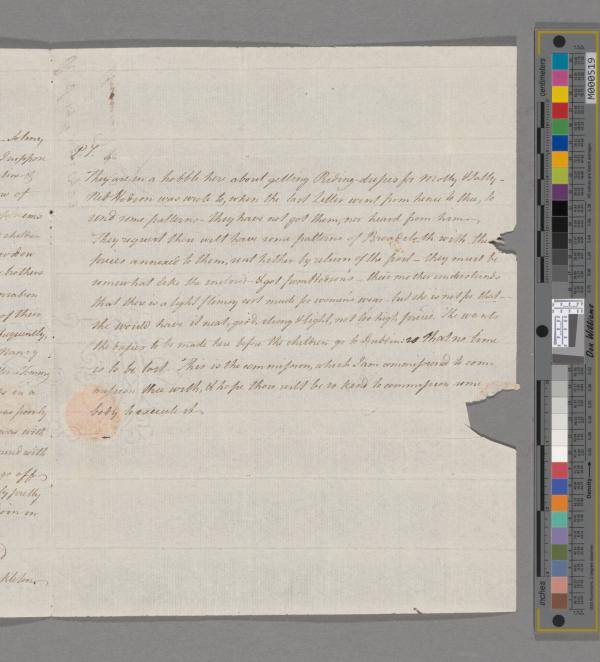 P.S. &c
They are in a hobble here about getting Riding-dresses for Molly & Sally-
Ned Hobson was wrote to, when the last Letter went from hence to thee, to
send some patterns - they have not got them, nor heard from him -
They request thou wilt have some patterns of Broad cloth with the
prices annexed to them, sent hither by return of the post - they must be
somewhat like the enclosed & got from Hobson's - their mother understands
that there is a light flimsy sort made for womens wear - but she is not for that -
she would have it neat, good, strong & light, not too high priced. She wants
the dresses to be made here before the children go to Dublin: so that no time
is to be lost. This is the commission, which I am commissioned to com-
mission thee with, & I hope thou wilt be so kind to commission some
body to execute it -
I suppose
of
children
brothers
of them
in a
was poorly
was with
and with
go off
pretty
centimeters
M000519
Don Williams
Density
inches